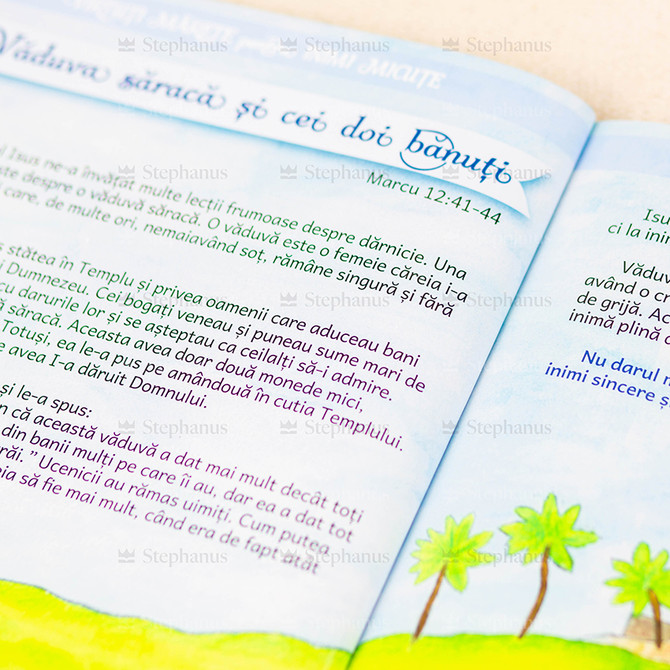 MICUȚE
Văduva săracă și cei doi bănuți
Marcu 12:41-44
Isus ne-a învățat multe lecții frumoase despre dărnicie. Una
despre o văduvă săracă. O văduvă este o femeie căreia i-a
care, de multe ori, nemaiavând soț, rămâne singură și fără
stătea în Templu și privea oamenii care aduceau bani
Dumnezeu. Cei bogați veneau și puneau sume mari de
cu darurile lor și se așteptau ca ceilalți să-i admire.
săracă. Aceasta avea doar două monede mici,
Totuși, ea le-a pus pe amândouă în cutia Templului.
avea I-a dăruit Domnului.
și le-a spus:
că această văduvă a dat mai mult decât toți
din banii mulți pe care îi au, dar ea a dat tot
Ucenicii au rămas uimiți. Cum putea
să fie mai mult, când era de fapt atât
Isu
ci la ini
Văduv
având o c
de grijă. Ac
inimă plină
Nu darul
inimi sincere ș
Stephanus